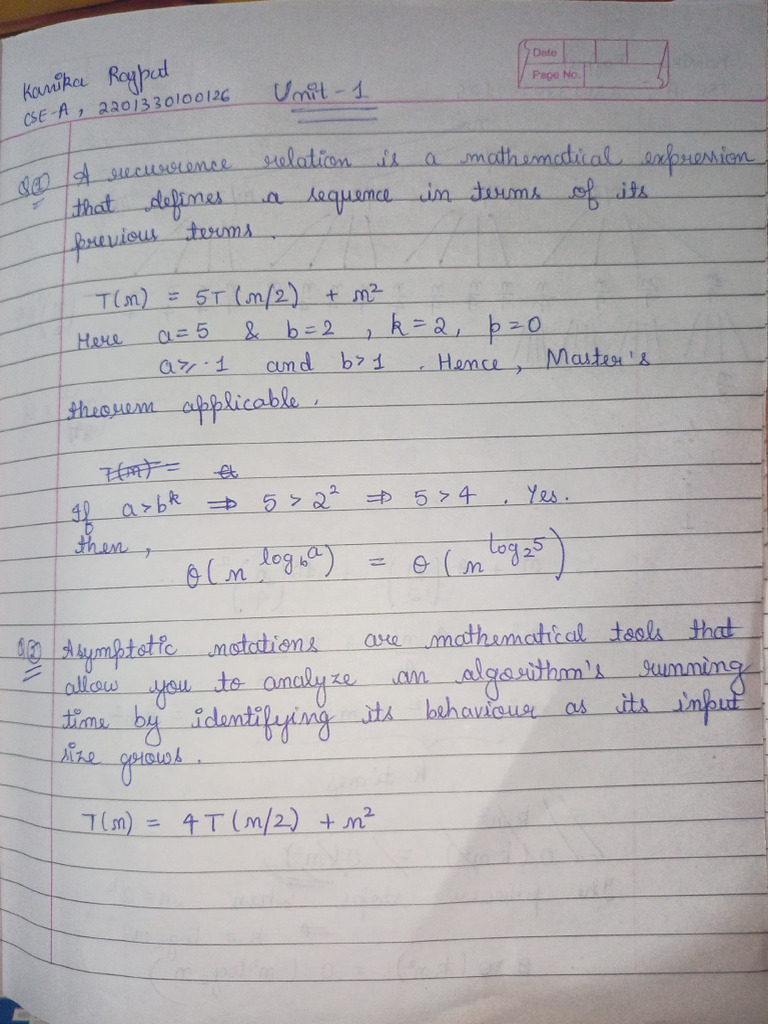 Kanika Rajput
CSE-A, 2201330100126
Unit-1
Date
Page No.
Q1 A recurrence relation is a mathematical expression
that defines a sequence in terms of its
previous terms.
T(n) = 5T(n/2) + n²
Here a=5 & b=2, k=2, p=0
a≥1 and b>1. Hence, Master's
theorem applicable.
T(n) = a
If a>bᵏ ⇒ 5 > 2² ⇒ 5 > 4. Yes.
then,
θ(n^log_b a) = θ(n^log_2 5)
Q2 Asymptotic notations are mathematical tools that
allow you to analyze an algorithm's running
time by identifying its behaviour as its input
size grows.
T(n) = 4T(n/2) + n²